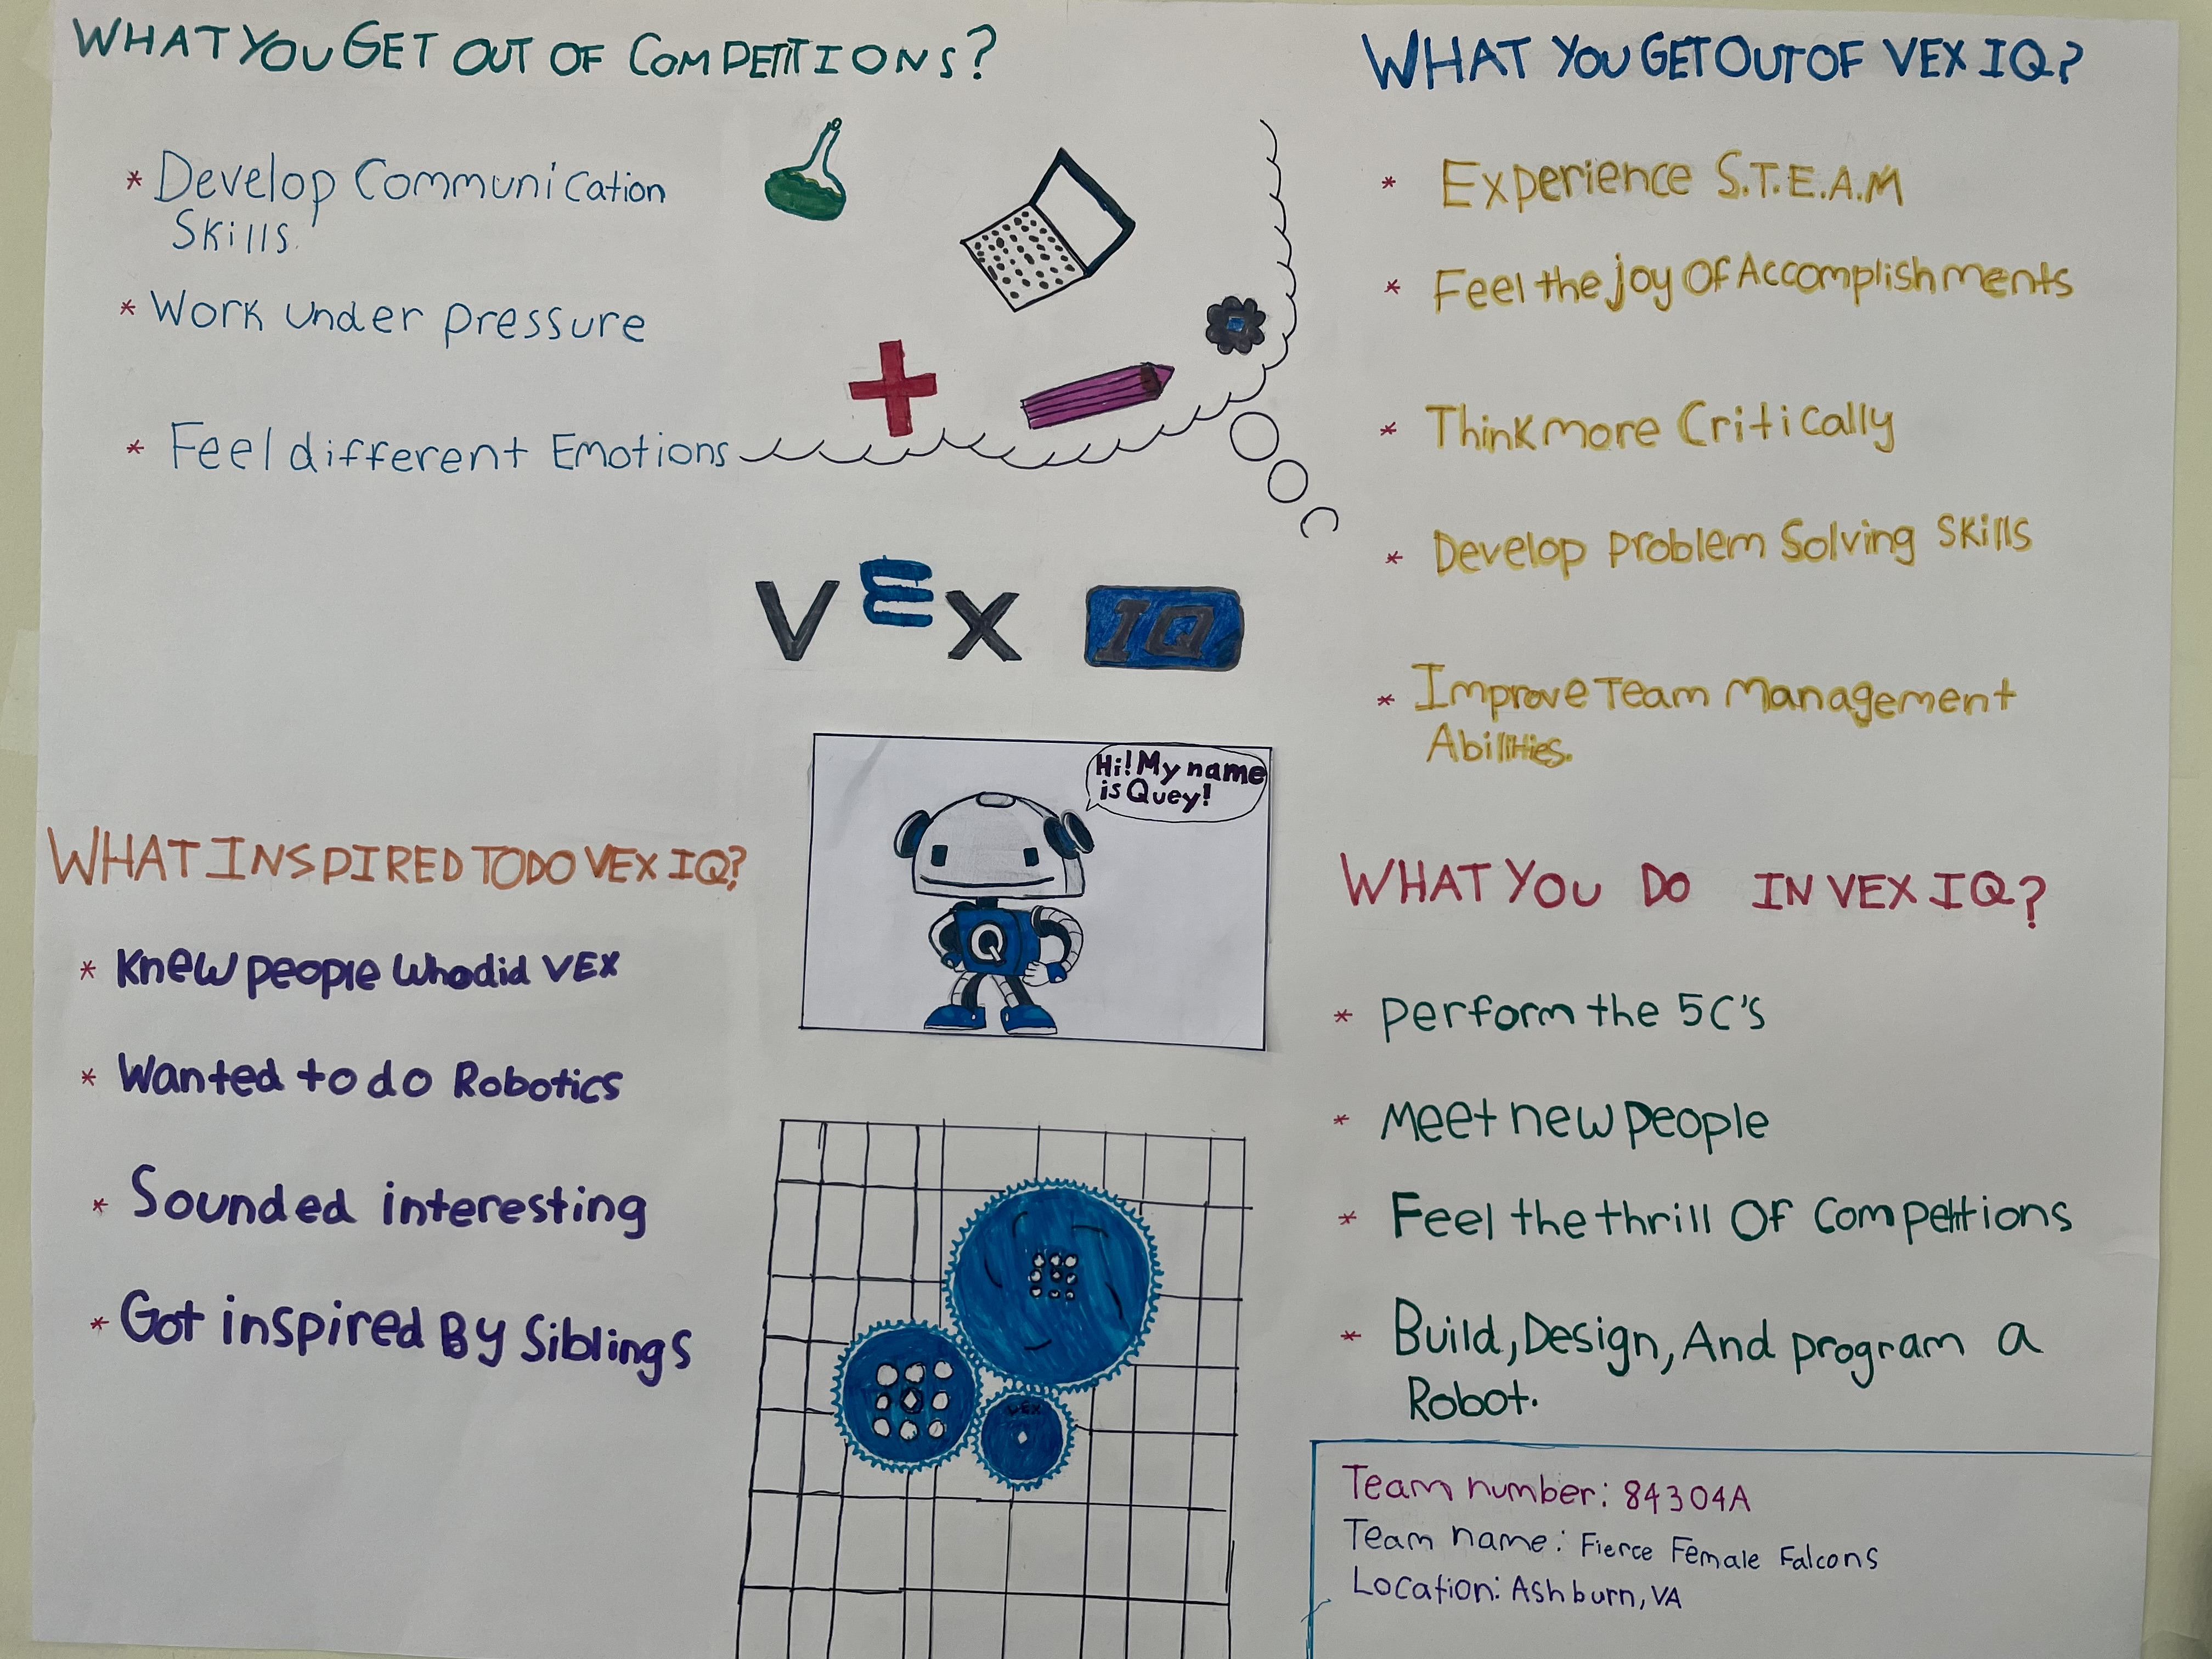 WHAT YOU GET OUT OF COMPETITIONS?
* Develop Communication
Skills.
* Work under pressure
* Feel different Emotions
WHAT YOU GET OUT OF VEX IQ?
* Experience S.T.E.A.M
* Feel the joy Of Accomplishments
* Think more Critically
* Develop problem Solving Skills
* Improve Team Management
Abilities.
VEX IQ
Hi! My name
is Quey!
Q
WHAT INSPIRED TO DO VEX IQ?
* Knew people Who did VEX
* Wanted to do Robotics
* Sounded interesting
* Got inspired By Siblings
VEX
WHAT YOU DO IN VEX IQ?
* Perform the 5C'S
* Meet new people
* Feel the thrill Of Competitions
* Build, Design, And program a
Robot.
Team number: 84304A
Team name: Fierce Female Falcons
Location: Ashburn, VA